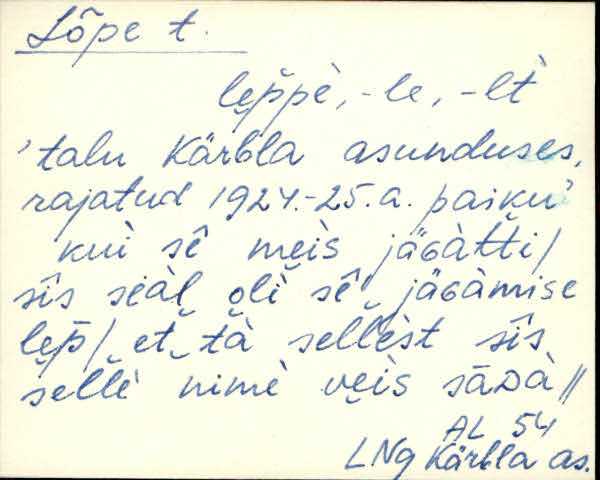 Lõpe t.
lep̆pè, -le, -lt̀
'talu Kärbla asunduses,
rajatud 1924.-25.a. paiku'
kuì sê meìs jäGàt̆ti/
sîs seàl̨ olì sê jäGàmise
lep̄/ et tà sel̆lèst sîs
sel̆lè nimè veìs sāDà//
AL 54
LNg Kärbla as.